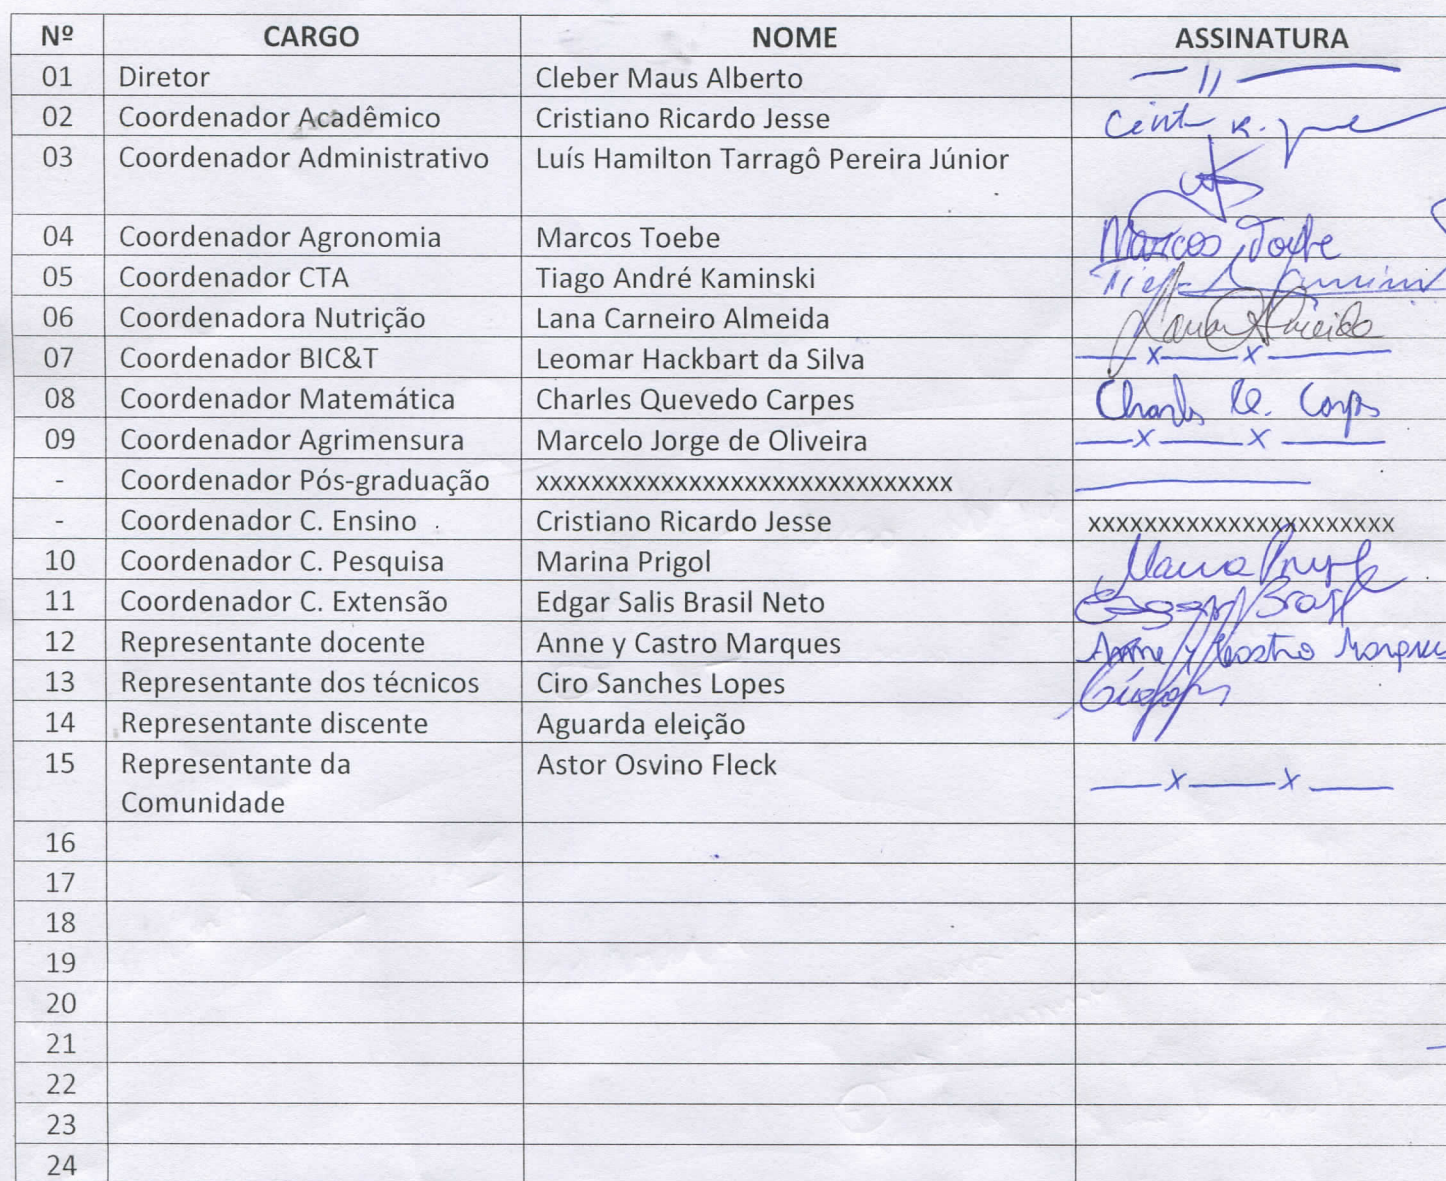 Nº CARGO NOME ASSINATURA
01 Diretor Cleber Maus Alberto
02 Coordenador Acadêmico Cristiano Ricardo Jesse
03 Coordenador Administrativo Luís Hamilton Tarragô Pereira Júnior
04 Coordenador Agronomia Marcos Toebe Marcos Toebe
05 Coordenador CTA Tiago André Kaminski
06 Coordenadora Nutrição Lana Carneiro Almeida Lana Almeida
07 Coordenador BIC&T Leomar Hackbart da Silva —x—x—
08 Coordenador Matemática Charles Quevedo Carpes Charles Q. Carpes
09 Coordenador Agrimensura Marcelo Jorge de Oliveira —x—x—
- Coordenador Pós-graduação xxxxxxxxxxxxxxxxxxxxxxxxxxxxxx
- Coordenador C. Ensino Cristiano Ricardo Jesse xxxxxxxxxxxxxxxxxxxxxx
10 Coordenador C. Pesquisa Marina Prigol
11 Coordenador C. Extensão Edgar Salis Brasil Neto
12 Representante docente Anne y Castro Marques Anne y Castro Marques
13 Representante dos técnicos Ciro Sanches Lopes
14 Representante discente Aguarda eleição
15 Representante da Astor Osvino Fleck —x—x—
Comunidade
16
17
18
19
20
21
22
23
24